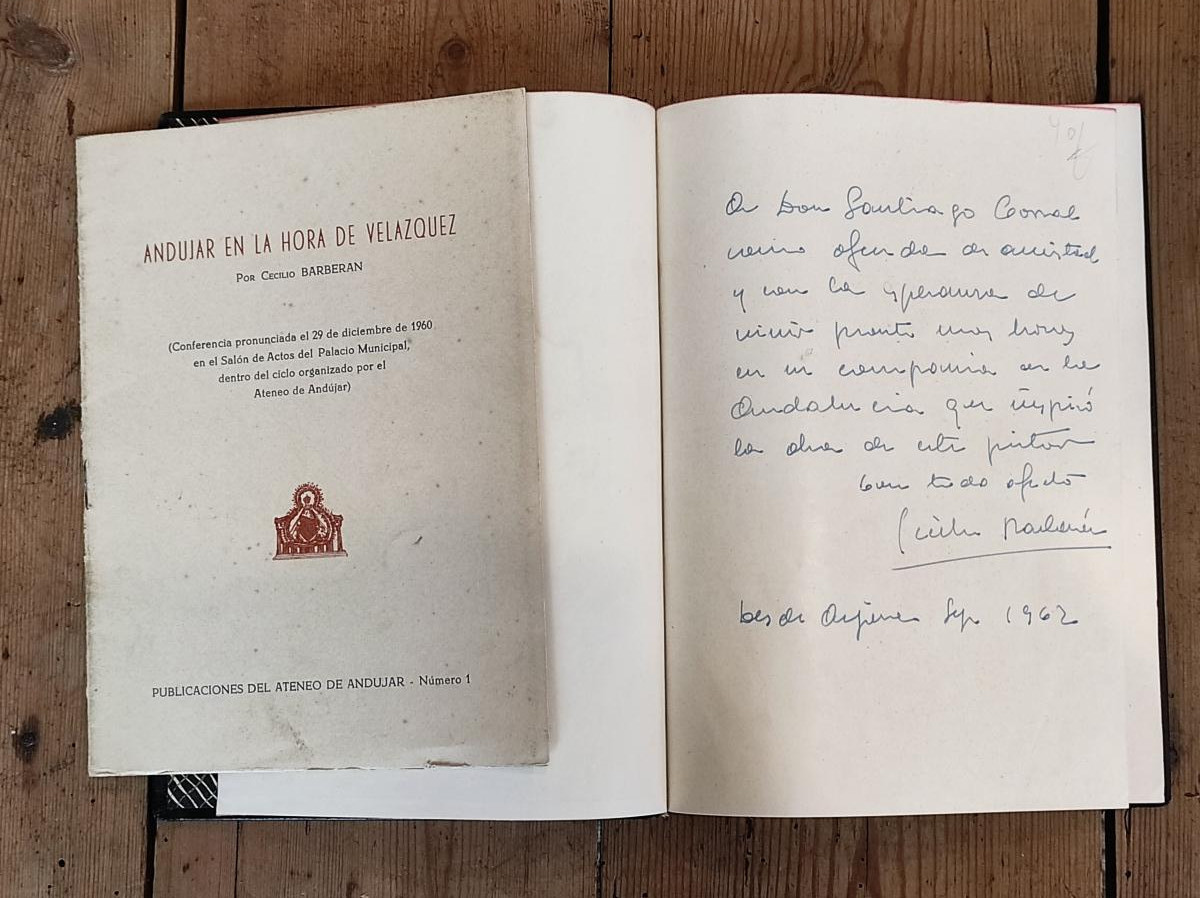 ANDUJAR EN LA HORA DE VELAZQUEZ
Por Cecilio BARBERAN
(Conferencia pronunciada el 29 de diciembre de 1960
en el Salón de Actos del Palacio Municipal,
dentro del ciclo organizado por el
Ateneo de Andújar)
PUBLICACIONES DEL ATENEO DE ANDUJAR - Número 1
A Don Santiago Corral
como ofrenda de amistad
y con la esperanza de
vivir pronto unas horas
en su compañia en la
Andalucia que inspiró
la obra de este pintor
Con todo afecto
Cecilio Barberán
Desde Sep. 1962